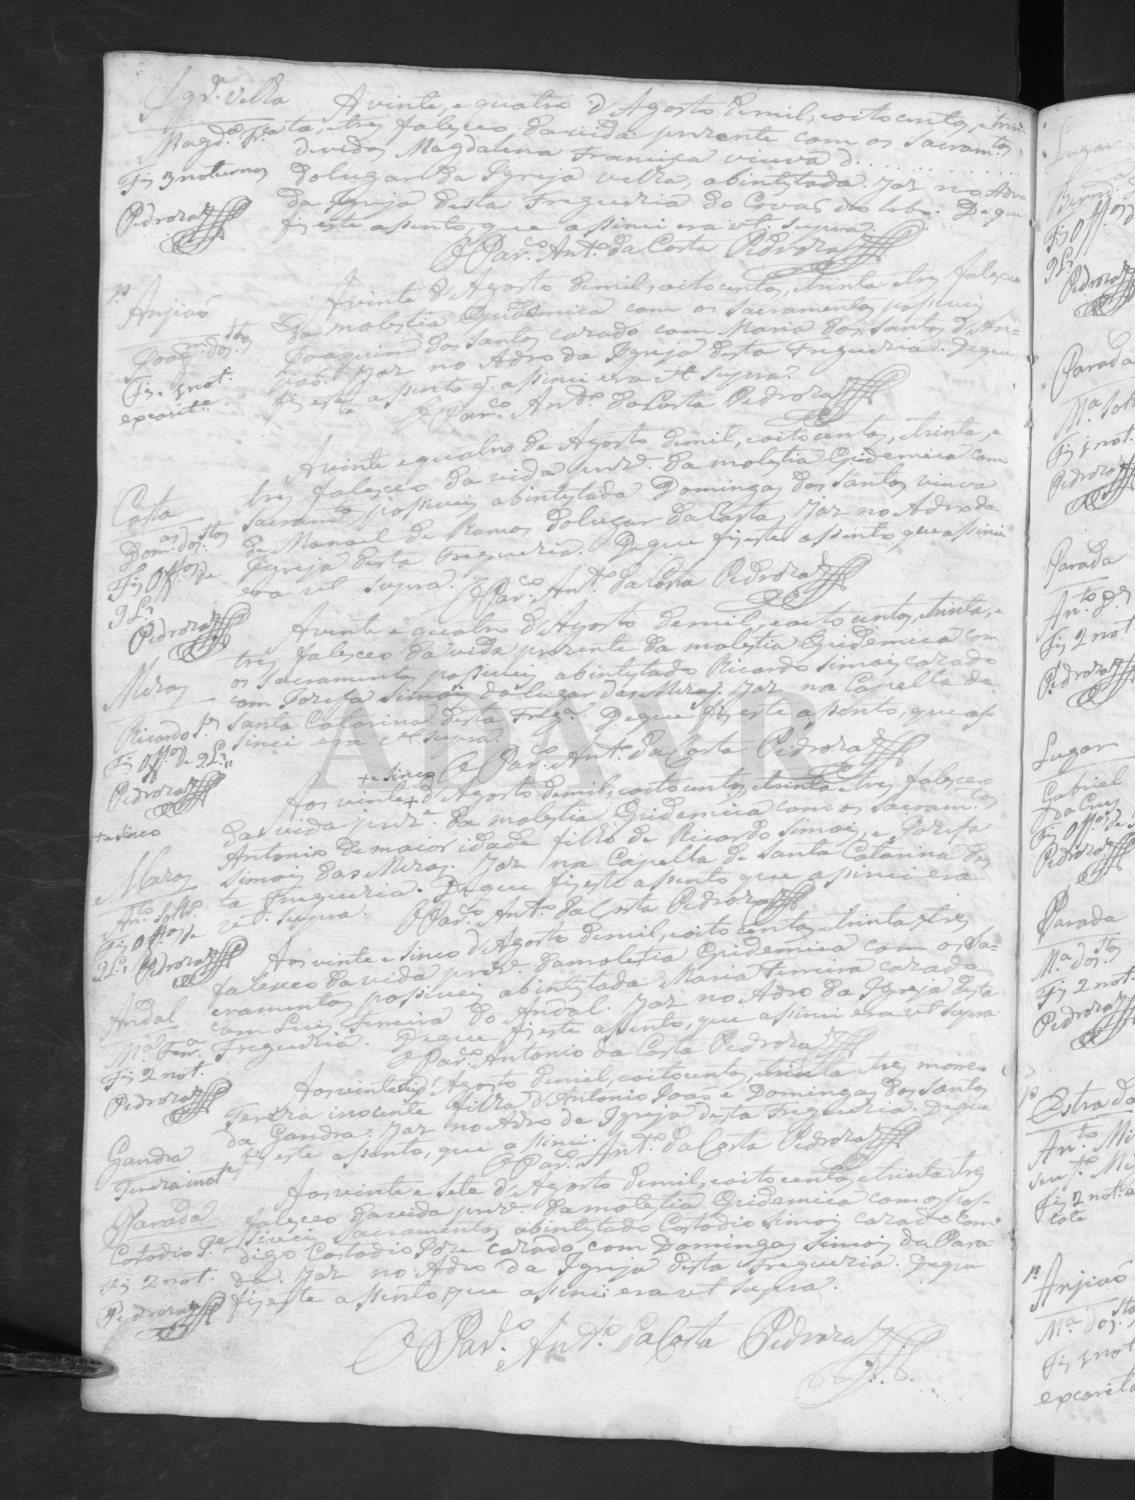 Igr.ª Velha
Magd.ª Fr.ca
Fiz 3 noturnos
Pedroza
A vinte, e quatro d'Agosto demil, eoito centos, etrin
ta, etres faleceo davida prezente com os sacram.tos
devidos Magdalena Francisca veuva d. . . . .
dolugar da Igreja velha, abintestada. Jaz no Adro
da Igreja desta Freguezia de Covas do lobo. De que
fiz este assento, que assinei era ut supra.
O Par.co Ant.º da Costa Pedroza
Anjiaó
Joaq.m dos S.tos
Fiz 1 not.
ex carit.e
A vinte d'Agosto demil, oito centos, etrinta etres faleceo
da molestia Epidemica com os sacramentos possiveis
Joaquim dos Santos cazado com Maria dos Santos d'An=
jiaó. Jaz no Adro da Igreja desta Freguezia. De que
fiz este assento q. assinei era ut supra.
O Par.co Ant.º da Costa Pedroza
Costa
Dom.as dos S.tos
Fiz Off.os de
9 L.es
Pedroza
A vinte e quatro de Agosto demil, eoito centos, etrinta, e
tres faleceo da vida prez.e da molestia Epidemica com
sacram.tos possiveis abintestada Domingas dos Santos viuva
de Manoel de Ramos dolugar da Costa, Jaz no Adro da
Igreja desta Freguezia. De que fiz este assento que assinei
era ut supra. O Par.co Ant.º da Costa Pedroza
Miras
Ricardo S.es
Fiz Off.os de 9 L.es
Pedroza
A vinte e quatro d'Agosto demil, eoito centos, etrinta, e
tres faleceo da vida prezente da molestia Epidemica com
os sacramentos possiveis, abintestado Ricardo Simois cazado
com Jozefa Simois do lugar das Miras. Jaz na Capella de
Santa Catarina desta Freg.ª Deque fiz este assento, que as
sinei era ut supra. O Par.co Ant.º da Costa Pedroza
+e sinco
+e sinco
Miras
Ant.º Solt.º
Fiz Off.os de
9 L.es Pedroza
Aos vinte+ d'Agosto demil, eoito centos, etrinta etres faleceo
da vida prez.e da molestia Epidemica com os sacram.tos
Antonio de maior idade filho de Ricardo Simois, e Jozefa
Simois das Miras. Jaz na Capella de Santa Catarina des
ta Freguezia. De que fiz este assento que assinei era
ut supra. O Par.co Ant.º da Costa Pedroza
Andal
M.ª Ferr.ª
Fiz 2 not.
Pedroza
Aos vinte e sinco d'Agosto demil, eoito centos, etrinta etres
faleceo da vida prez.e damolestia Epidemica com os Sa=
cramentos possiveis abintestada Maria Ferreira cazada
com Luis Ferreira do Andal. Jaz no Adro da Igreja desta
Freguezia. De que fiz este assento, que assinei era ut supra
O Par.co Antonio da Costa Pedroza
Gandra
Tereza inot.e
Aos vinte d'Agosto demil, eoito centos, etrinta etres, moreo
Tereza inocente filha d'Antonio Joaó e Domingas dos Santos
da Gandra. Jaz no Adro da Igreja desta Freguezia. De que
fiz este assento, que assinei. O Par.co Ant.º da Costa Pedroza
Parada
Costodio J.e
Fiz 2 not.
Pedroza
Aos vinte e sete d'Agosto demil, eoito centos, etrinta etres
faleceo da vida prez.e da molestia Epidemica com os pos=
siveis sacramentos, abintestado Costodio Simois cazado com
digo Costodio Joze cazado com Domingas Simois da Para
da. Jaz no Adro da Igreja desta Freguezia. De que
fiz este assento, que assinei era ut supra.
O Par.co Ant.º da Costa Pedroza
ADAVR
Lugar
Fiz Off.os
9 L.es
Pedroza
Parada
M.ª Solt
Fiz 1 not.
Pedroza
Parada
Ant.º
Fiz 2 not
Pedroza
Lugar
Gabriel
da Cruz
Fiz Off.os de
Pedroza
Parada
M.ª dos S.tos
Fiz 2 not.
Pedroza
Estrada
Ant.º
Fiz 2 not.
Anjiaó
M.ª dos S.tos
Fiz 1 not
ex carit